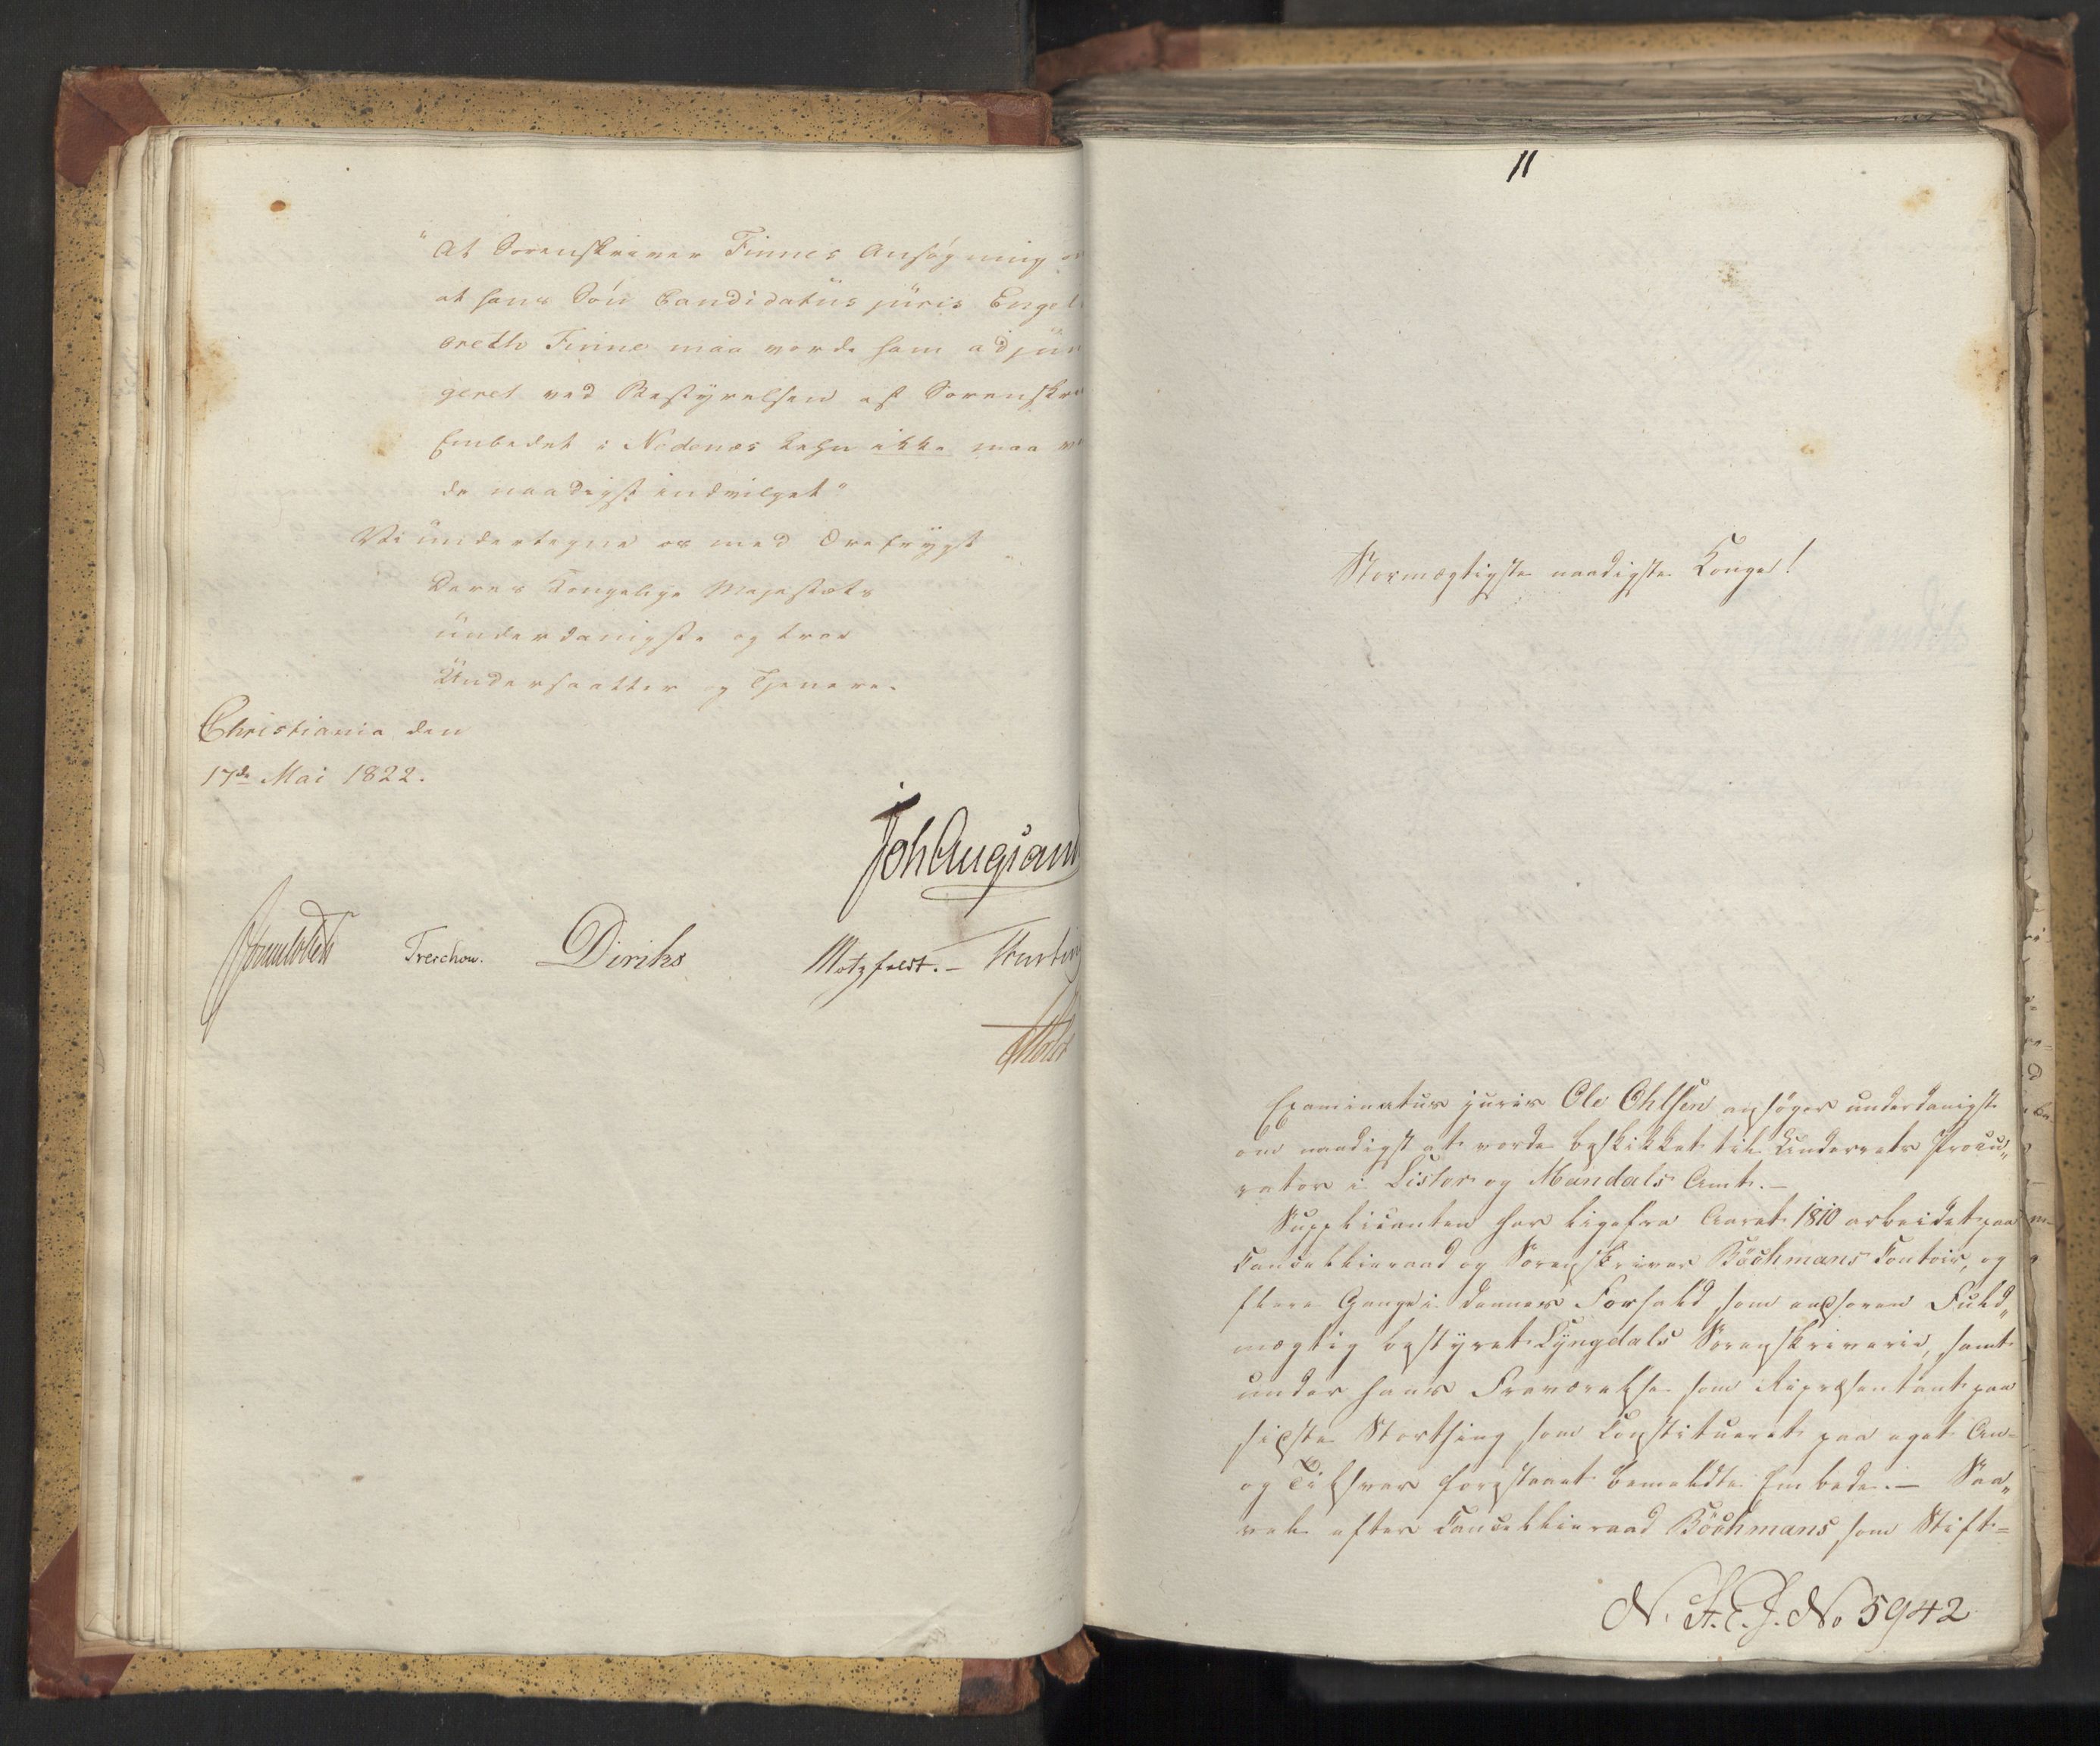 "At Sorenskriver Finnes Ansøgning
at hans Søn Candidatus juris Engel
breth Finne maa vorde ham adjun
geret ved Bestyrelsen af Sorenskri
Embedet i Nedenæs Lehn ikke maa
de naadigst indvilget"
Vi undertegne os med Ærefrygt
Deres Kongelige Majestæts
underdanigste og troe
Undersaatter og Tjenere.
Christiania den
17de Mai 1822.
Joh Aug Sand
Sommerhielm Treschow. Diriks Motzfeldt. –
Holst
11
Stormægtigste naadigste Konge!
Examinatus juris Ole Ohlsen ansøger underdanigst
om naadigst at vorde beskikket til Underrets Procu„
rator i Lister og Mandals Amt. –
Supplicanten har ligefra Aaret 1810 arbeidet paa
Cancelliraad og Sorenskriver Böchmans Contoir, og
flere Gange i dennes Forfald, som eedsoren Fuld„
mægtig bestyret Lyngdals Sorenskriverie, samt
under hans Fraværelse som Repræsentant paa
sidste Storthing som Constitueret paa eget An-
og Tilsvar forestaaet bemeldte Embede. – Saa„
vel efter Cancelliraad Böchmans, som Stift=
N. St. C. J. No 5942